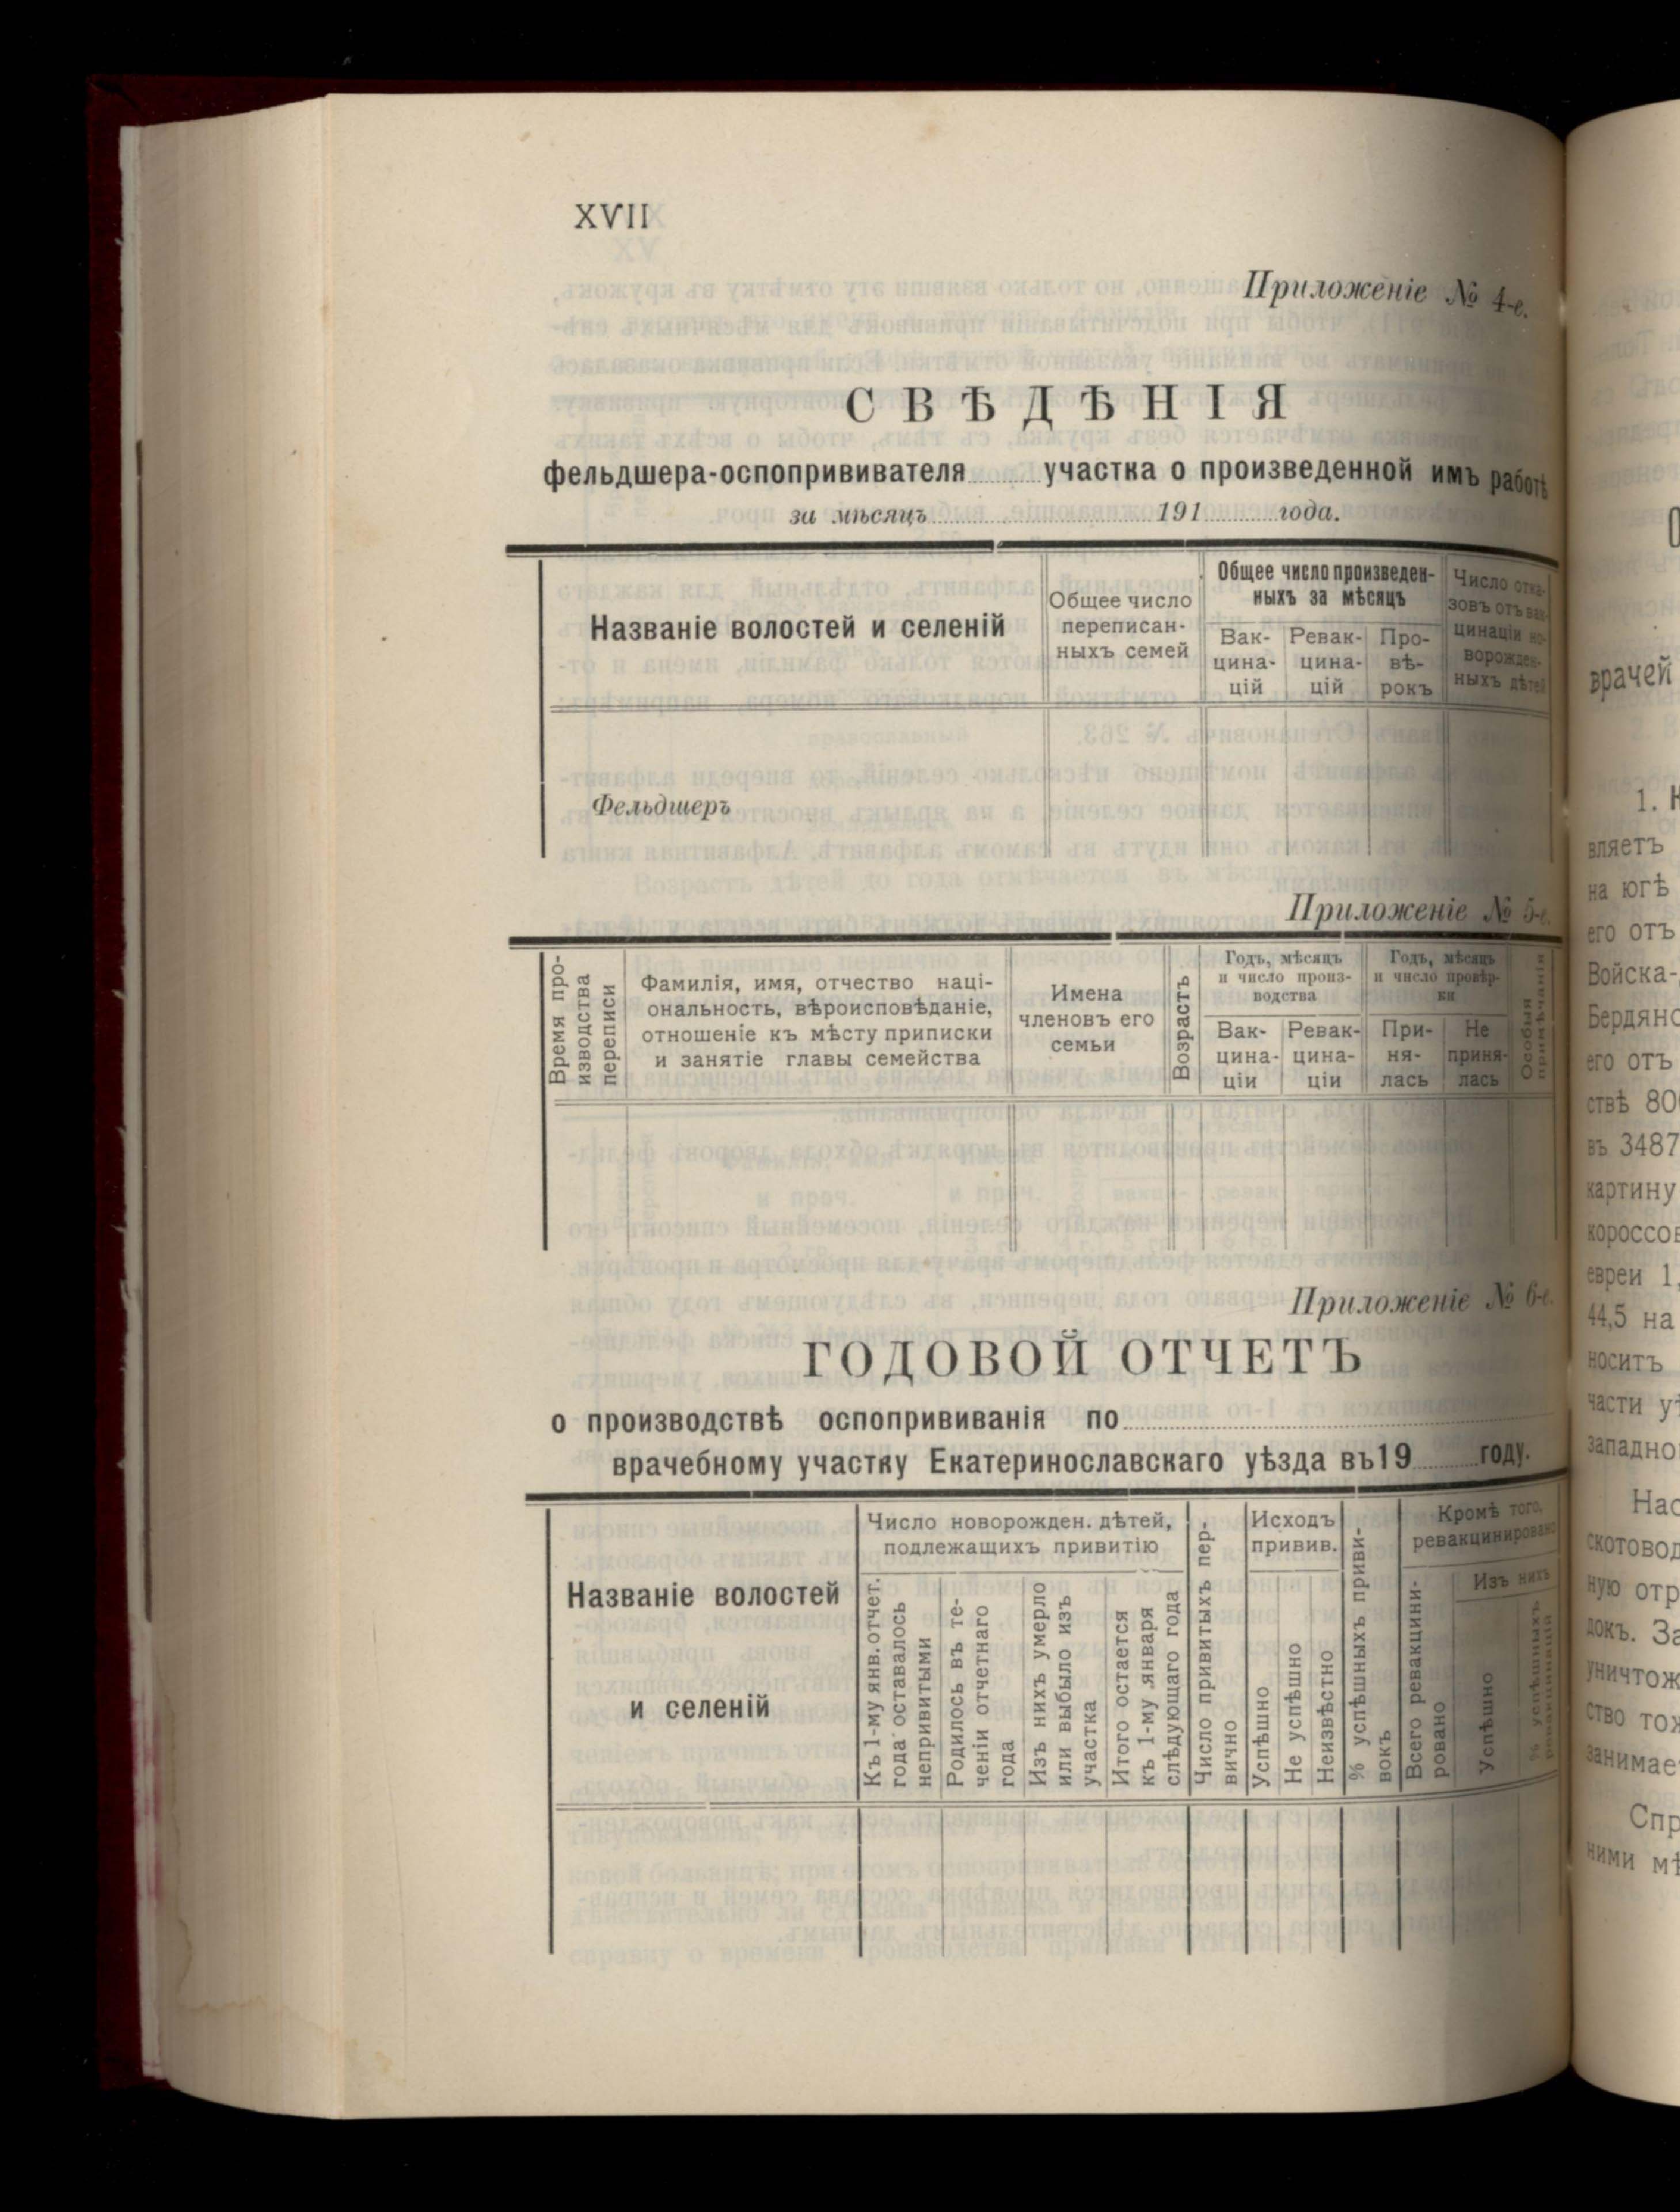 XVII
Приложеніе № 4-е.
СВѢДѢНІЯ
фельдшера-оспопрививателя участка о произведенной имъ работѣ
за мѣсяцъ 191 года.
Названіе волостей и селеній
Общее число
переписан-
ныхъ семей
Общее число произведен-
ныхъ за мѣсяцъ
Вак-
цина-
цій
Ревак-
цина-
цій
Про-
вѣ-
рокъ
Число отка-
зовъ отъ вак-
цинаціи но-
ворожден-
ныхъ дѣтей
Фельдшеръ
Приложеніе № 5-е.
Время про-
изводства
переписи
Фамилія, имя, отчество наці-
ональность, вѣроисповѣданіе,
отношеніе къ мѣсту приписки
и занятіе главы семейства
Имена
членовъ его
семьи
Возрастъ
Годъ, мѣсяцъ
и число произ-
водства
Вак-
цина-
ціи
Ревак-
цина-
ціи
Годъ, мѣсяцъ
и число провѣр-
ки
При-
ня-
лась
Не
приня-
лась
Особыя
примѣчанія
Приложеніе № 6-е.
ГОДОВОЙ ОТЧЕТЪ
о производствѣ оспопрививанія по
врачебному участку Екатеринославскаго уѣзда въ 19 году.
Названіе волостей
и селеній
Число новорожден. дѣтей,
подлежащихъ привитію
Къ 1-му янв. отчет.
года оставалось
непривитыми
Родилось въ те-
ченіи отчетнаго
года
Изъ нихъ умерло
или выбыло изъ
участка
Итого остается
къ 1-му января
слѣдующаго года
Число привитыхъ пер-
вично
Исходъ
привив.
Успѣшно
Не успѣшно
Неизвѣстно
% успѣшныхъ приви-
вокъ
Кромѣ того,
ревакцинировано
Всего ревакцини-
ровано
Изъ нихъ
Успѣшно
% успѣшныхъ
ревакцинацій
врачей
1.
вляетъ
на югѣ
его отъ
Войска-
Бердянс
его отъ
ствѣ 80
въ 3487
картину
короссов
евреи 1,
44,5 на
носитъ
части уѣ
западно
Нас
скотовод
ную отр
докъ. За
уничтож
ство тож
занимает
Спр
ними мѣ